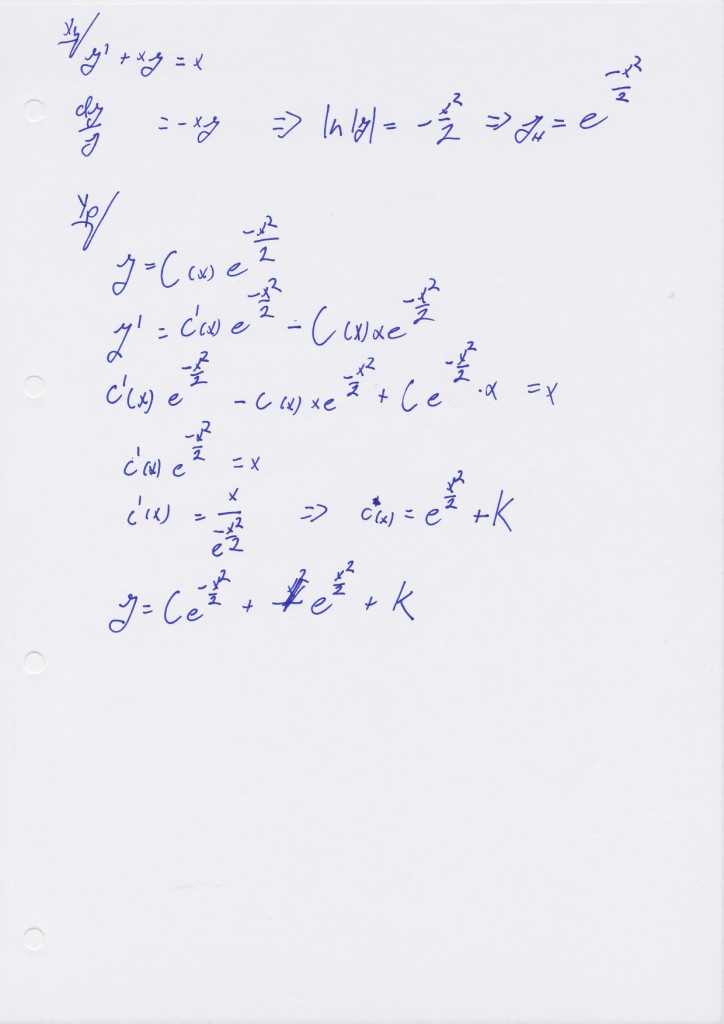 y_H/
y' + xy = x
dy/y = -xy => ln|y| = -x²/2 => y_H = e^(-x²/2)
y_p/
y = C(x) e^(-x²/2)
y' = C'(x) e^(-x²/2) - C(x) x e^(-x²/2)
C'(x) e^(-x²/2) - C(x) x e^(-x²/2) + C e^(-x²/2) · x = x
C'(x) e^(-x²/2) = x
C'(x) = x/e^(-x²/2) => C(x) = e^(x²/2) + K
y = C e^(-x²/2) + e^(x²/2) + K